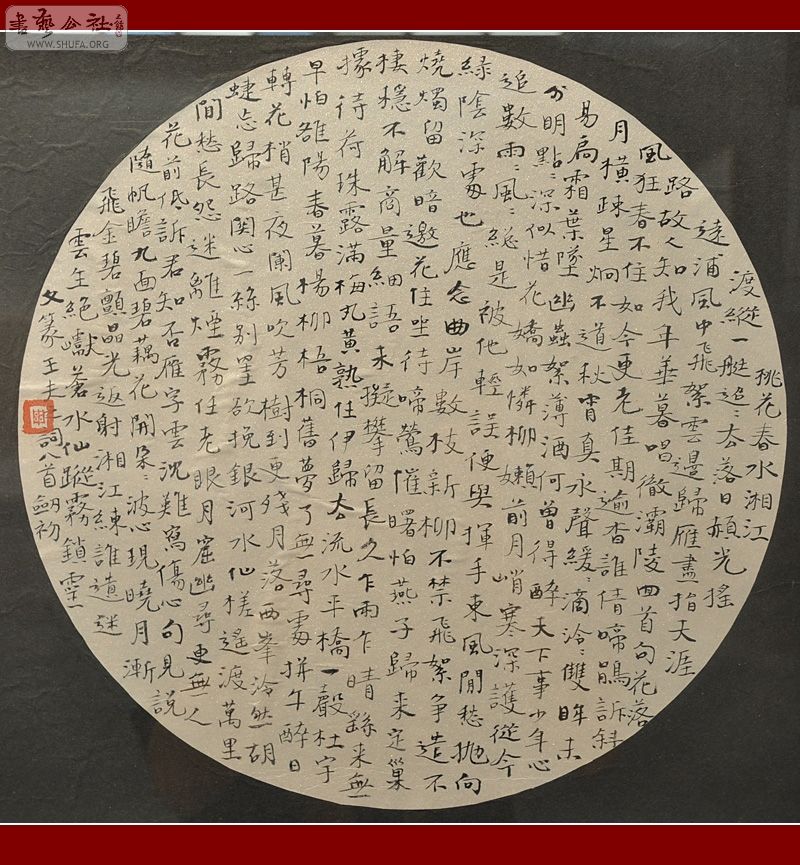 書藝公社
WWW.SHUFA.ORG
桃花春水湘江
渡縱一艇迢〻去落日赬光搖
遠浦風中飛絮雲邊歸雁盡指天涯
路故人知我年華暮唱徹灞陵回首句花落
風狂春不住如今更老佳期逾杳誰倩啼鵑訴斜
月橫疎星炯不道秋宵真永聲緩〻滴泠〻雙眸未
易扃霜葉墜幽蟲絮薄酒何曾得醉天下事少年心
分明點〻深似惜花嬌如憐柳嬾前月峭寒深護從今
追數雨〻風〻總是被他輕誤便與揮手東風閒愁拋向
綠陰深處也應念曲岸數枝新柳不禁飛絮爭造不
燒燭留歡暗邀花住坐待啼鶯催曙怕燕子歸來定巢
棲穩不解商量細語未擬攀留長久乍雨乍晴繇來無
據待荷珠露滿梅丸黃熟任伊歸去流水平橋一聲杜宇
早怕雒陽春暮楊柳梧桐舊夢了無尋處拼午醉日
轉花梢甚夜闌風吹芳樹到更殘月落西峯泠然胡
蜨忘歸路關心一絲別罣欲挽銀河水仙槎遙渡萬里
閒愁長怨迷離煙霧任老眼月窟幽尋更無人
花前低訴君知否雁字雲沈難寫傷心句見說
隨帆瞻九面碧藕花開朵〻波心現曉月漸
飛金碧顫晶光返射湘江練誰遺迷
雲生絕巘蒼水仙蹤霧鎖靈
文篆 王夫之詞八首 劍初